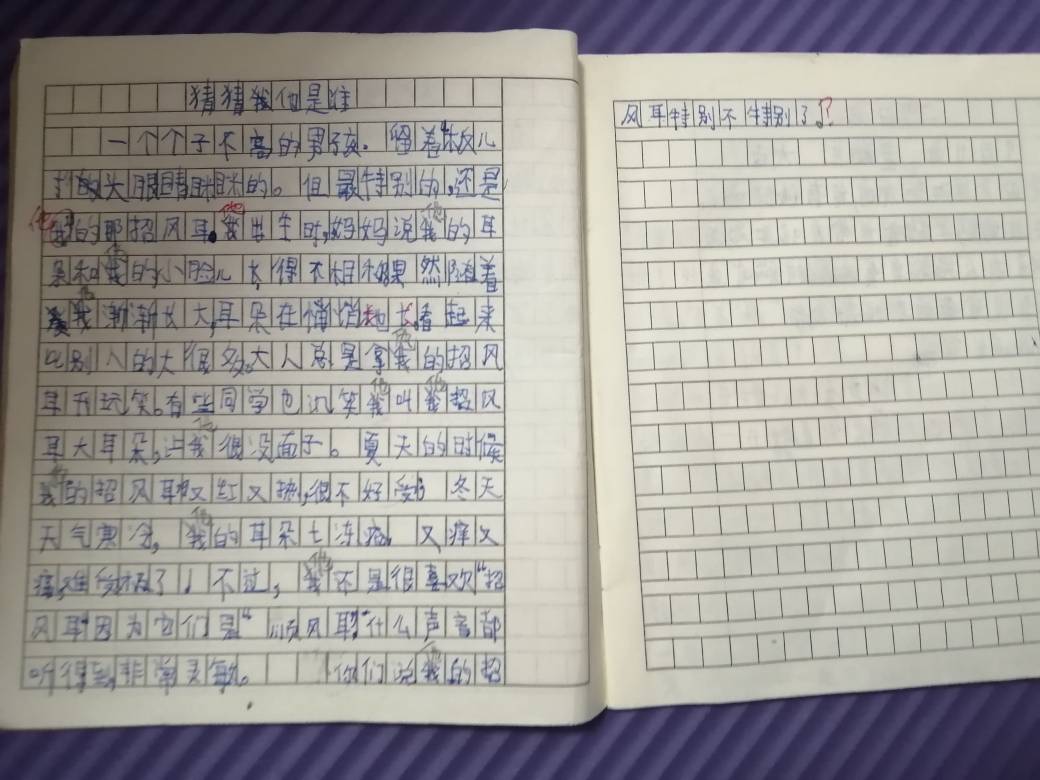 猜猜我他是谁
一个个子不高的男孩。留着"板儿
寸"的头眼睛眯眯的。但最特别的,还是
他的那招风耳。他出生时,妈妈说他的耳
朵和他的小脸儿太得不相称果然随着
他渐渐长大,耳朵在悄悄地长,看起来
比别人的大很多。大人总是拿他的招风
耳开玩笑。有些同学也讥笑他叫他招风
耳大耳朵,让他很没面子。夏天的时候
他的招风耳又红又热,很不好受。冬天
天气寒冷,他的耳朵上冻疮,又痒又
痛,难受极了!不过,他还是很喜欢"招
风耳"因为它们是"顺风耳"什么声音都
听得到,非常灵敏。你们说他的招
风耳特别不特别了?